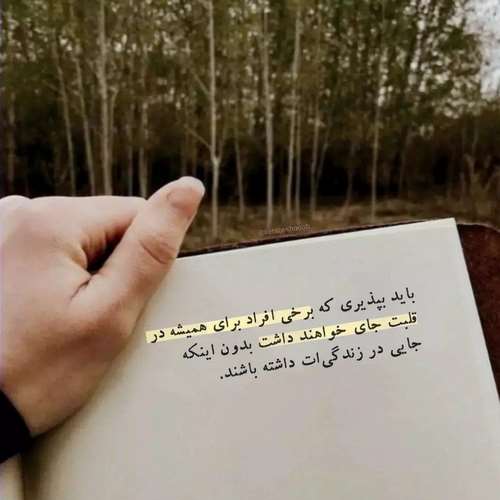 باید بپذیری که برخی افراد برای همیشه در
قلبت جای خواهند داشت بدون اینکه
جایی در زندگی‌ات داشته باشند.